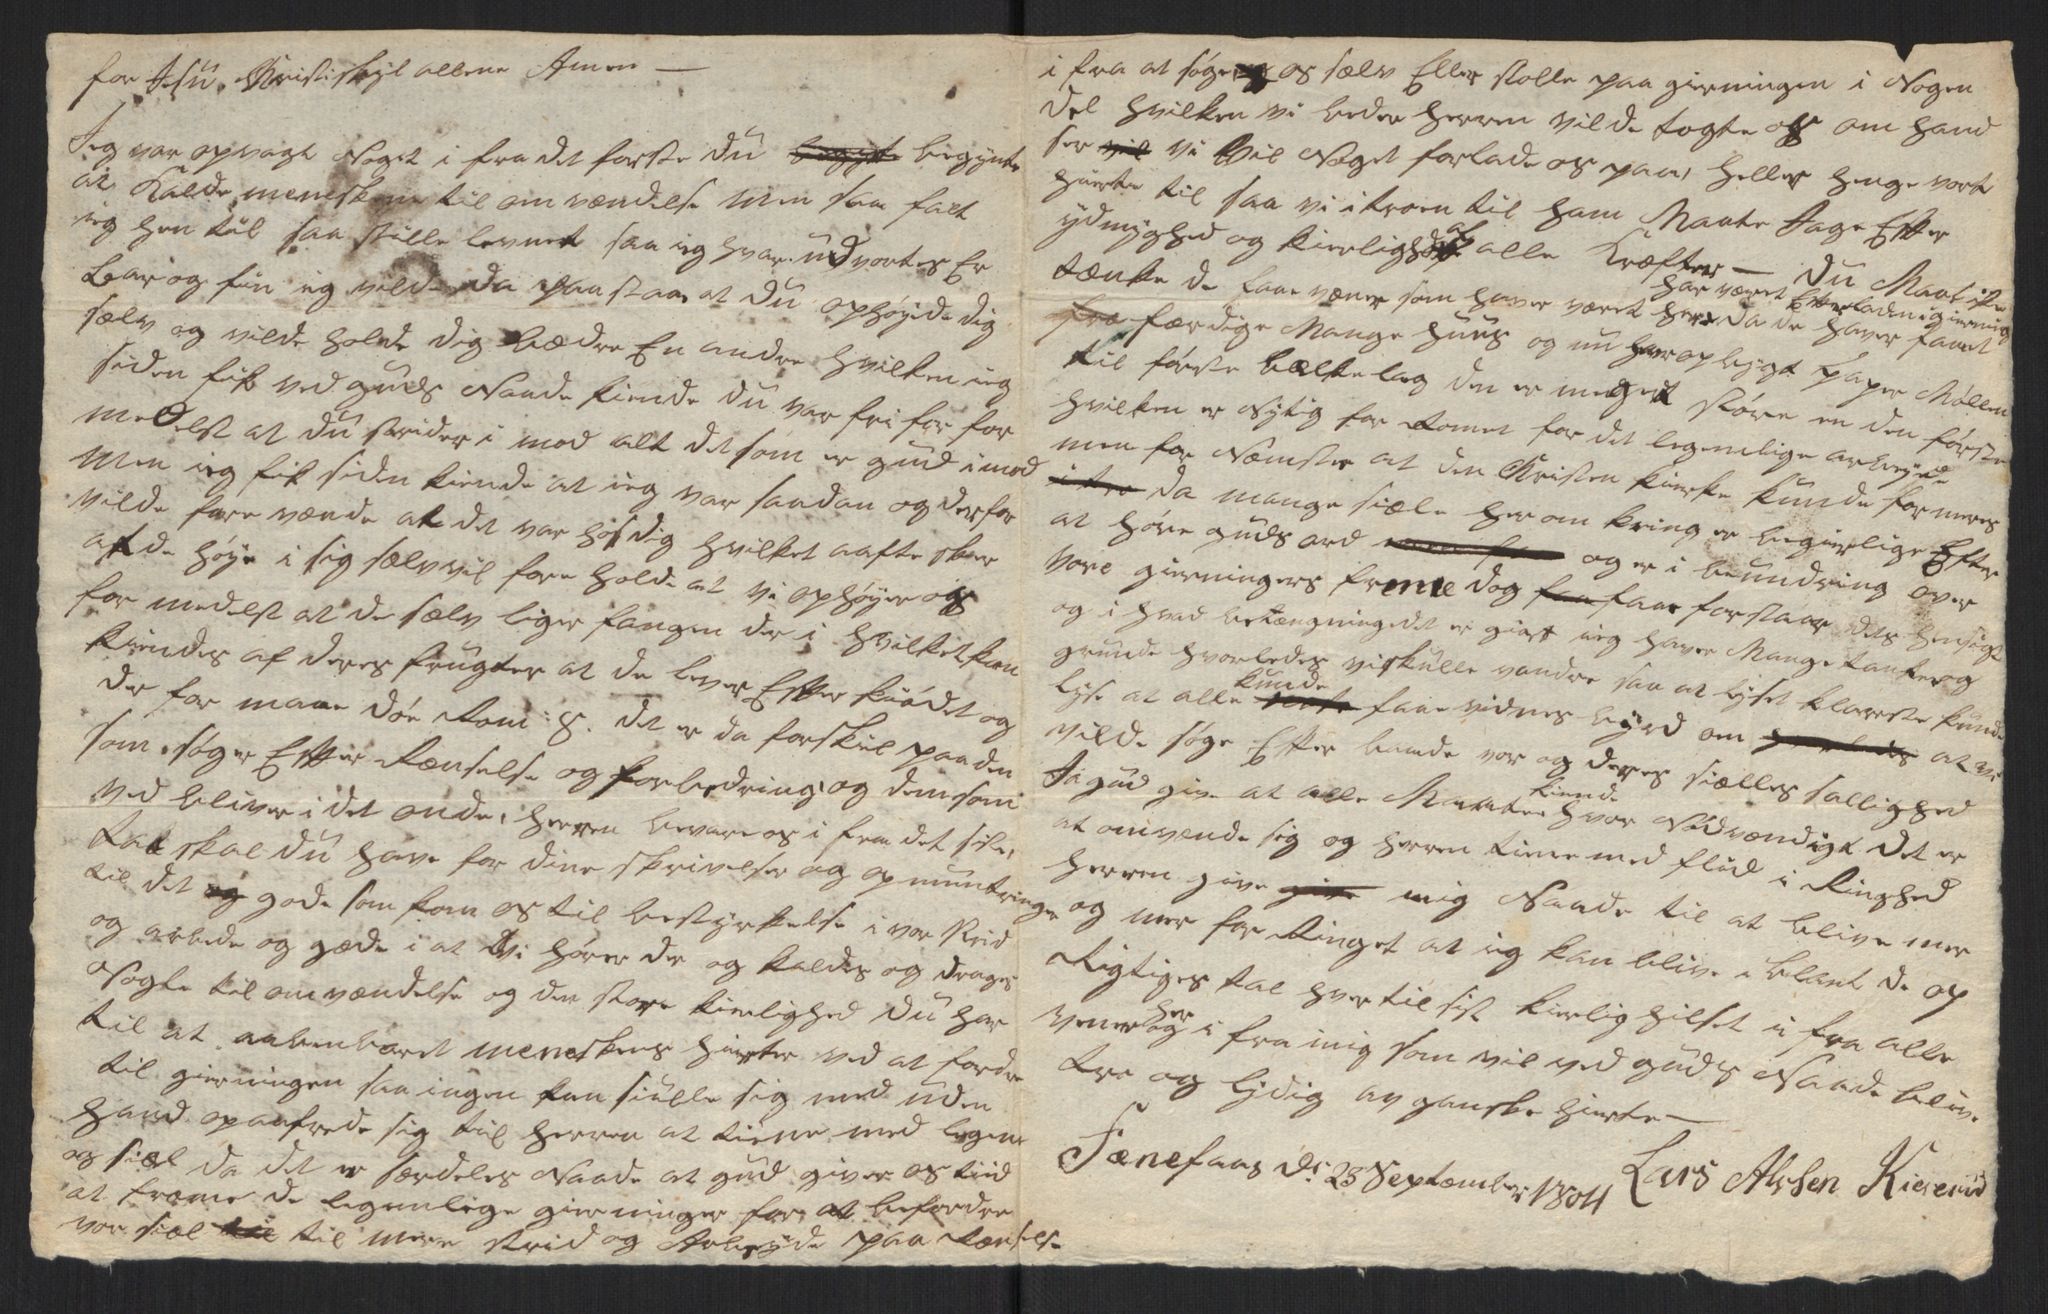 for Jesu Kristi skyl allene Amen —
Jeg var opvagt Noget i fra det første du begynte
at Kalde meneskene til omvændelse men saa falt
ieg hen til saa stille levnet saa ieg hvar udvortes Er
bar og fin ieg vilde da paastaae at du ophøyde dig
sælv og vilde holde dig bædre En andre hvilken ieg
siden fik ved guds Naade kiende du var fri for for
medelst at du strider i mod alt det som er gud imod
Men ieg fik siden kiende at ieg var saadan og derfor
vilde fore vænde at det var hos dig hvilket aafte sker
at de høye i sig sælv vil fore holde at vi ophøyer os
for medelst at de sælv liger fangen der i hvilket kan
kiendes af deres frugter at de lever Efter kiødet og
der for maae døe Rom: 8. det er da forskiel paa den
som søger Efter Rænselse og forbedring og dem som
ved bliver i det onde, herren bevare os i fra det siste,
tak skal du have for dine skrivelser og opmuntringer
til det gode som kom os til bestyrkelse i vor strid
og arbede og glæde i at vi hører der og kaldes og drages
Nogle til omvændelse og den store kierlighed du har
til at aabenbaret meneskens hierter ved at fordre
til gierningen saa ingen kan skiulle sig med uden
hand opaafrede sig til herren at tiene med legeme
og siæl da det er særdeles Naade at gud giver os tiid
at fræme de legemlige gierninger for at befordre
vor siæl til mere strid og Arbeyde paa Rænselse
i fra at søge os sælv Eller stolle paa gierningen i Nogen
del hvilken vi beder herren vilde togte os om hand
ser vi vil Noget forlade os paa, heller henge vort
hierte til saa vi i troen til ham Maate Jage Efter
ydmyghed og kierlighed af alle Kræfter — du Maat
tænke de faae væner som haver været her da de haver faaet
har været Efterladen i giernig
færdige Mange huus og nu her opbygt paper Møllen
til første bælkelag den er meget større en den første
hvilken er Nytig for Romet for det legemlige arbeyde
men for Næmste at den Kristen kierke kunde formeres
da mange siæle her om kring er begierlige Efter
at høre guds ord og er i beundring over
vore gierningers freme dog faae forstaar dets hensigt
og i hvad betængning det er giort ieg haver Mange tanker og
grunde hvorledes vi skulle vandre saa at lyset klareste kunde
lyse at alle kunde faae vidnes byrd om at vi
vilde søge Efter baade vor og deres siælles sallighed
Ja gud give at alle Maatte kiende hvor Nødvændigt det er
at omvende sig og herren tiene med fliid i Ringhed
herren give mig Naade til at blive mer
og mer for Ringet at ieg kan blive i blant de op
Rigtiges tal hver til sist kierlig hilset i fra alle
vener her og i fra mig som vil ved guds Naade blive
tro og lydig av ganske hierte —
Fænefaas d: 23 September 1804 Lars Alsen Kiererud